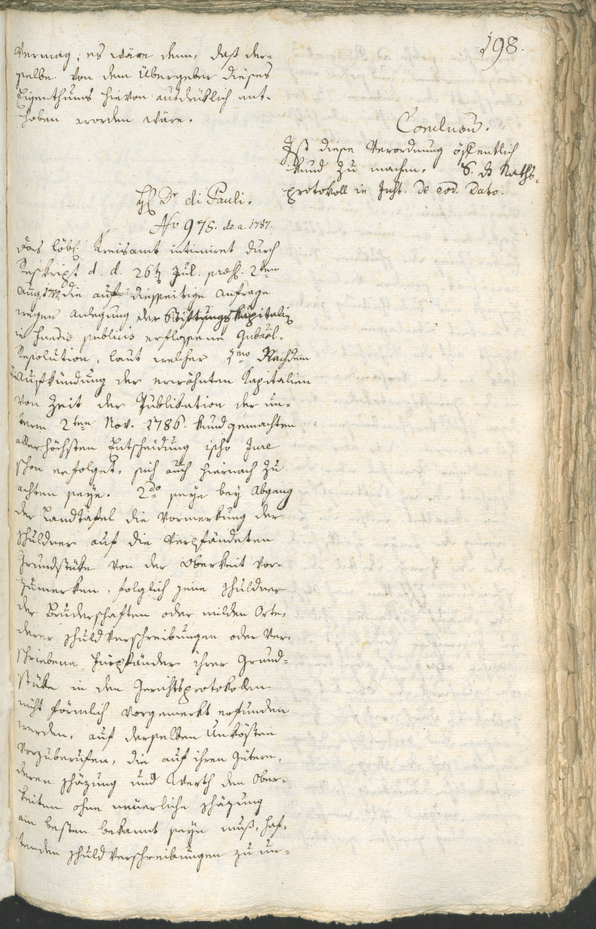 198.
vermag; es wäre denn, daß der-
selbe von dem Übergeber dieses
Eigenthums hievon ausdrüklich ent-
hoben worden wäre.
Conclusum.
Ist diese Verordnung öffentlich
kund zu machen. V. ds Raths-
protokoll in Just. de eod. Dato.
H. Dr. di Pauli.
No 975. de a. 1787.
Das löbl. Kreisamt intimiret durch
Reskript d. d. 26ten Jul. præs. 2ten
Aug. die auf diesseitige Anfrage
wegen Anlegung der Stiftungskapitalien
in fundis publicis erflossene Gubnal-
Resolution, laut welcher 1mo Nachdem
die Aufkündung der erwähnten Kapitalien
von Zeit der Publikation der un-
term 2ten Nov. 1786. kundgemachten
allerhöchsten Entscheidung ipso Jure
schon erfolget, sich auch hiernach zu
achten seye. 2do seye bey Abgang
der Landtafel die Vormerkung der
Schuldner auf die verpfändeten
Grundstüke von der Oberkeit vor-
zumerken, folglich jene Schuldner
der Bruderschaften oder milden Orte,
deren Schuldverschreibungen oder ver-
schriebene Fürpfänder ihrer Grund-
stüke in den Gerichtsprotokollen
nicht förmlich vorgemerkt erfunden
werden, auf derselben Unkösten
vorzuberufen, die auf ihren Gütern,
deren Schäzung und Werth den Ober-
keiten ohne neuerliche Schäzung
am besten bekannt seyn muß, haf-
tenden Schuldverschreibungen zu un-